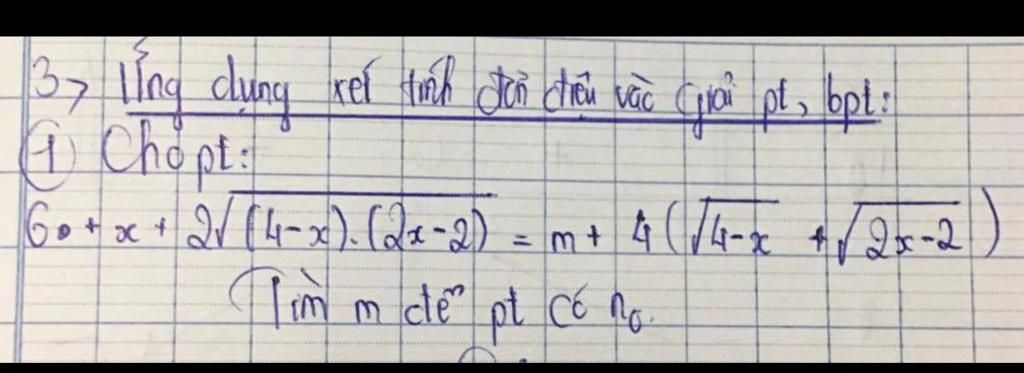 3> Ứng dụng xét tính đơn điệu vào giải pt, bpt:
① Cho pt:
6 + x + 2√((4-x).(2x-2)) = m + 4(√(4-x) + √(2x-2))
Tìm m để pt có n₀.